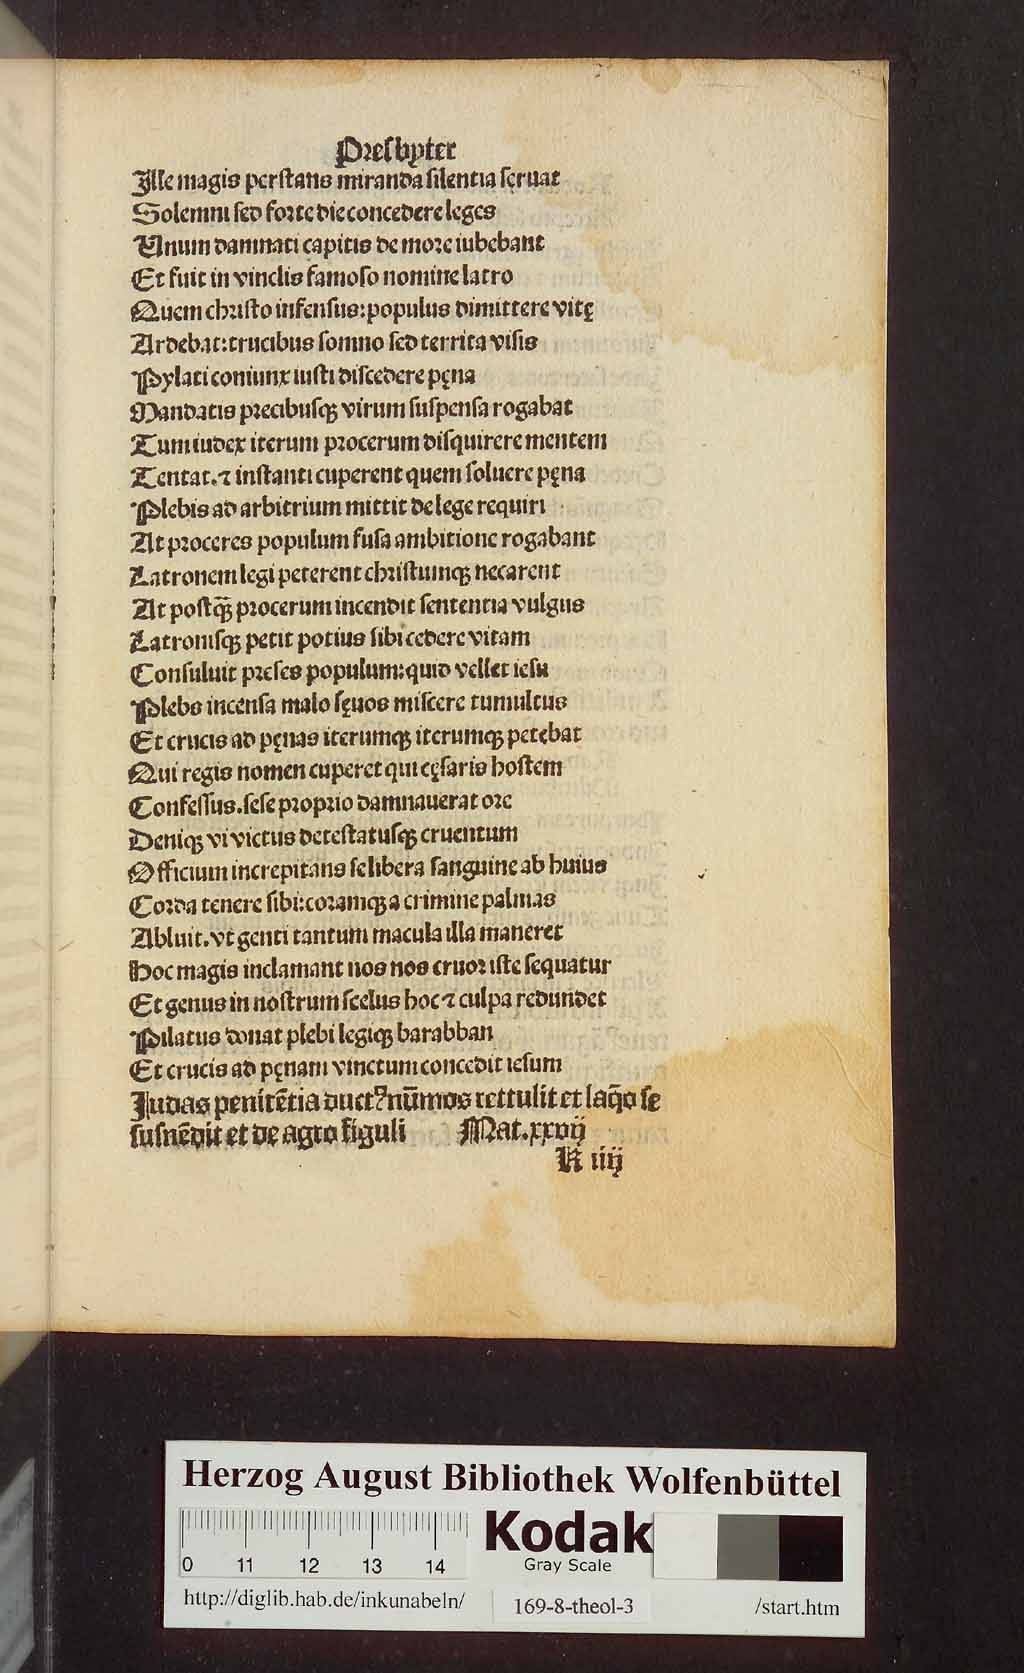 Presbyter
Ille magis perstans miranda silentia sęruat
Solemni sed forte die concedere leges
Unum damnati capitis de more iubebant
Et fuit in vinclis famoso nomine latro
Quem christo infensus:populus dimittere vitę
Ardebat:trucibus somno sed territa visis
Pylati coniunx iusti discedere pęna
Mandatis precibusqꝫ virum suspensa rogabat
Tum iudex iterum procerum disquirere mentem
Tentat.⁊ instanti cuperent quem soluere pęna
Plebis ad arbitrium mittit de lege requiri
At proceres populum fusa ambitione rogabant
Latronem legi peterent christumqꝫ necarent
At postqꝫ̄ procerum incendit sententia vulgus
Latronisqꝫ petit potius sibi cedere vitam
Consuluit preses populum:quid vellet iesu
Plebs incensa malo sęuos miscere tumultus
Et crucis ad pęnas iterumqꝫ iterumqꝫ petebat
Qui regis nomen cuperet qui cęsaris hostem
Confessus.sese proprio damnauerat ore
Deniqꝫ vi victus detestatusqꝫ cruentum
Officium increpitans se libera sanguine ab huius
Corda tenere sibi:coramqꝫ a crimine palmas
Abluit.vt genti tantum macula illa maneret
Hoc magis inclamant nos nos cruor iste sequatur
Et genus in nostrum scelus hoc ⁊ culpa redundet
Pilatus donat plebi legiqꝫ barabban
Et crucis ad pęnam vinctum concedit iesum
Judas penitētia ductꝰ nūmos rettulit et laq̄o se
susnēdit et de agro figuli Mat.xxvij
K iiij
Herzog August Bibliothek Wolfenbüttel
0 11 12 13 14
Kodak
Gray Scale
http://diglib.hab.de/inkunabeln/ 169-8-theol-3 /start.htm